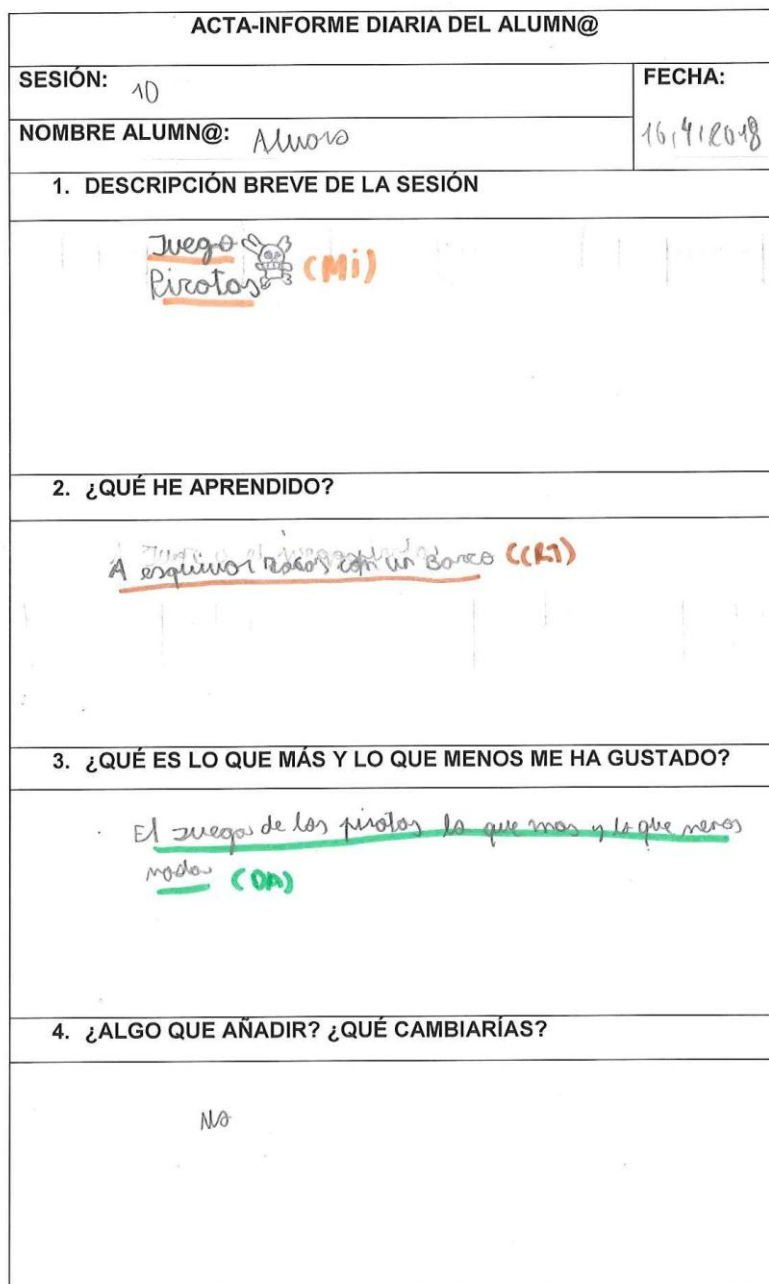 ACTA-INFORME DIARIA DEL ALUMN@
SESIÓN: 10
FECHA:
16,4,2018
NOMBRE ALUMN@:
1. DESCRIPCIÓN BREVE DE LA SESIÓN
Juego
Piratas (Mi)
2. ¿QUÉ HE APRENDIDO?
A esquivar rocas con un Barco
3. ¿QUÉ ES LO QUE MÁS Y LO QUE MENOS ME HA GUSTADO?
El Juego de los piratas lo que mas y lo que menos
nada (DA)
4. ¿ALGO QUE AÑADIR? ¿QUÉ CAMBIARÍAS?
No